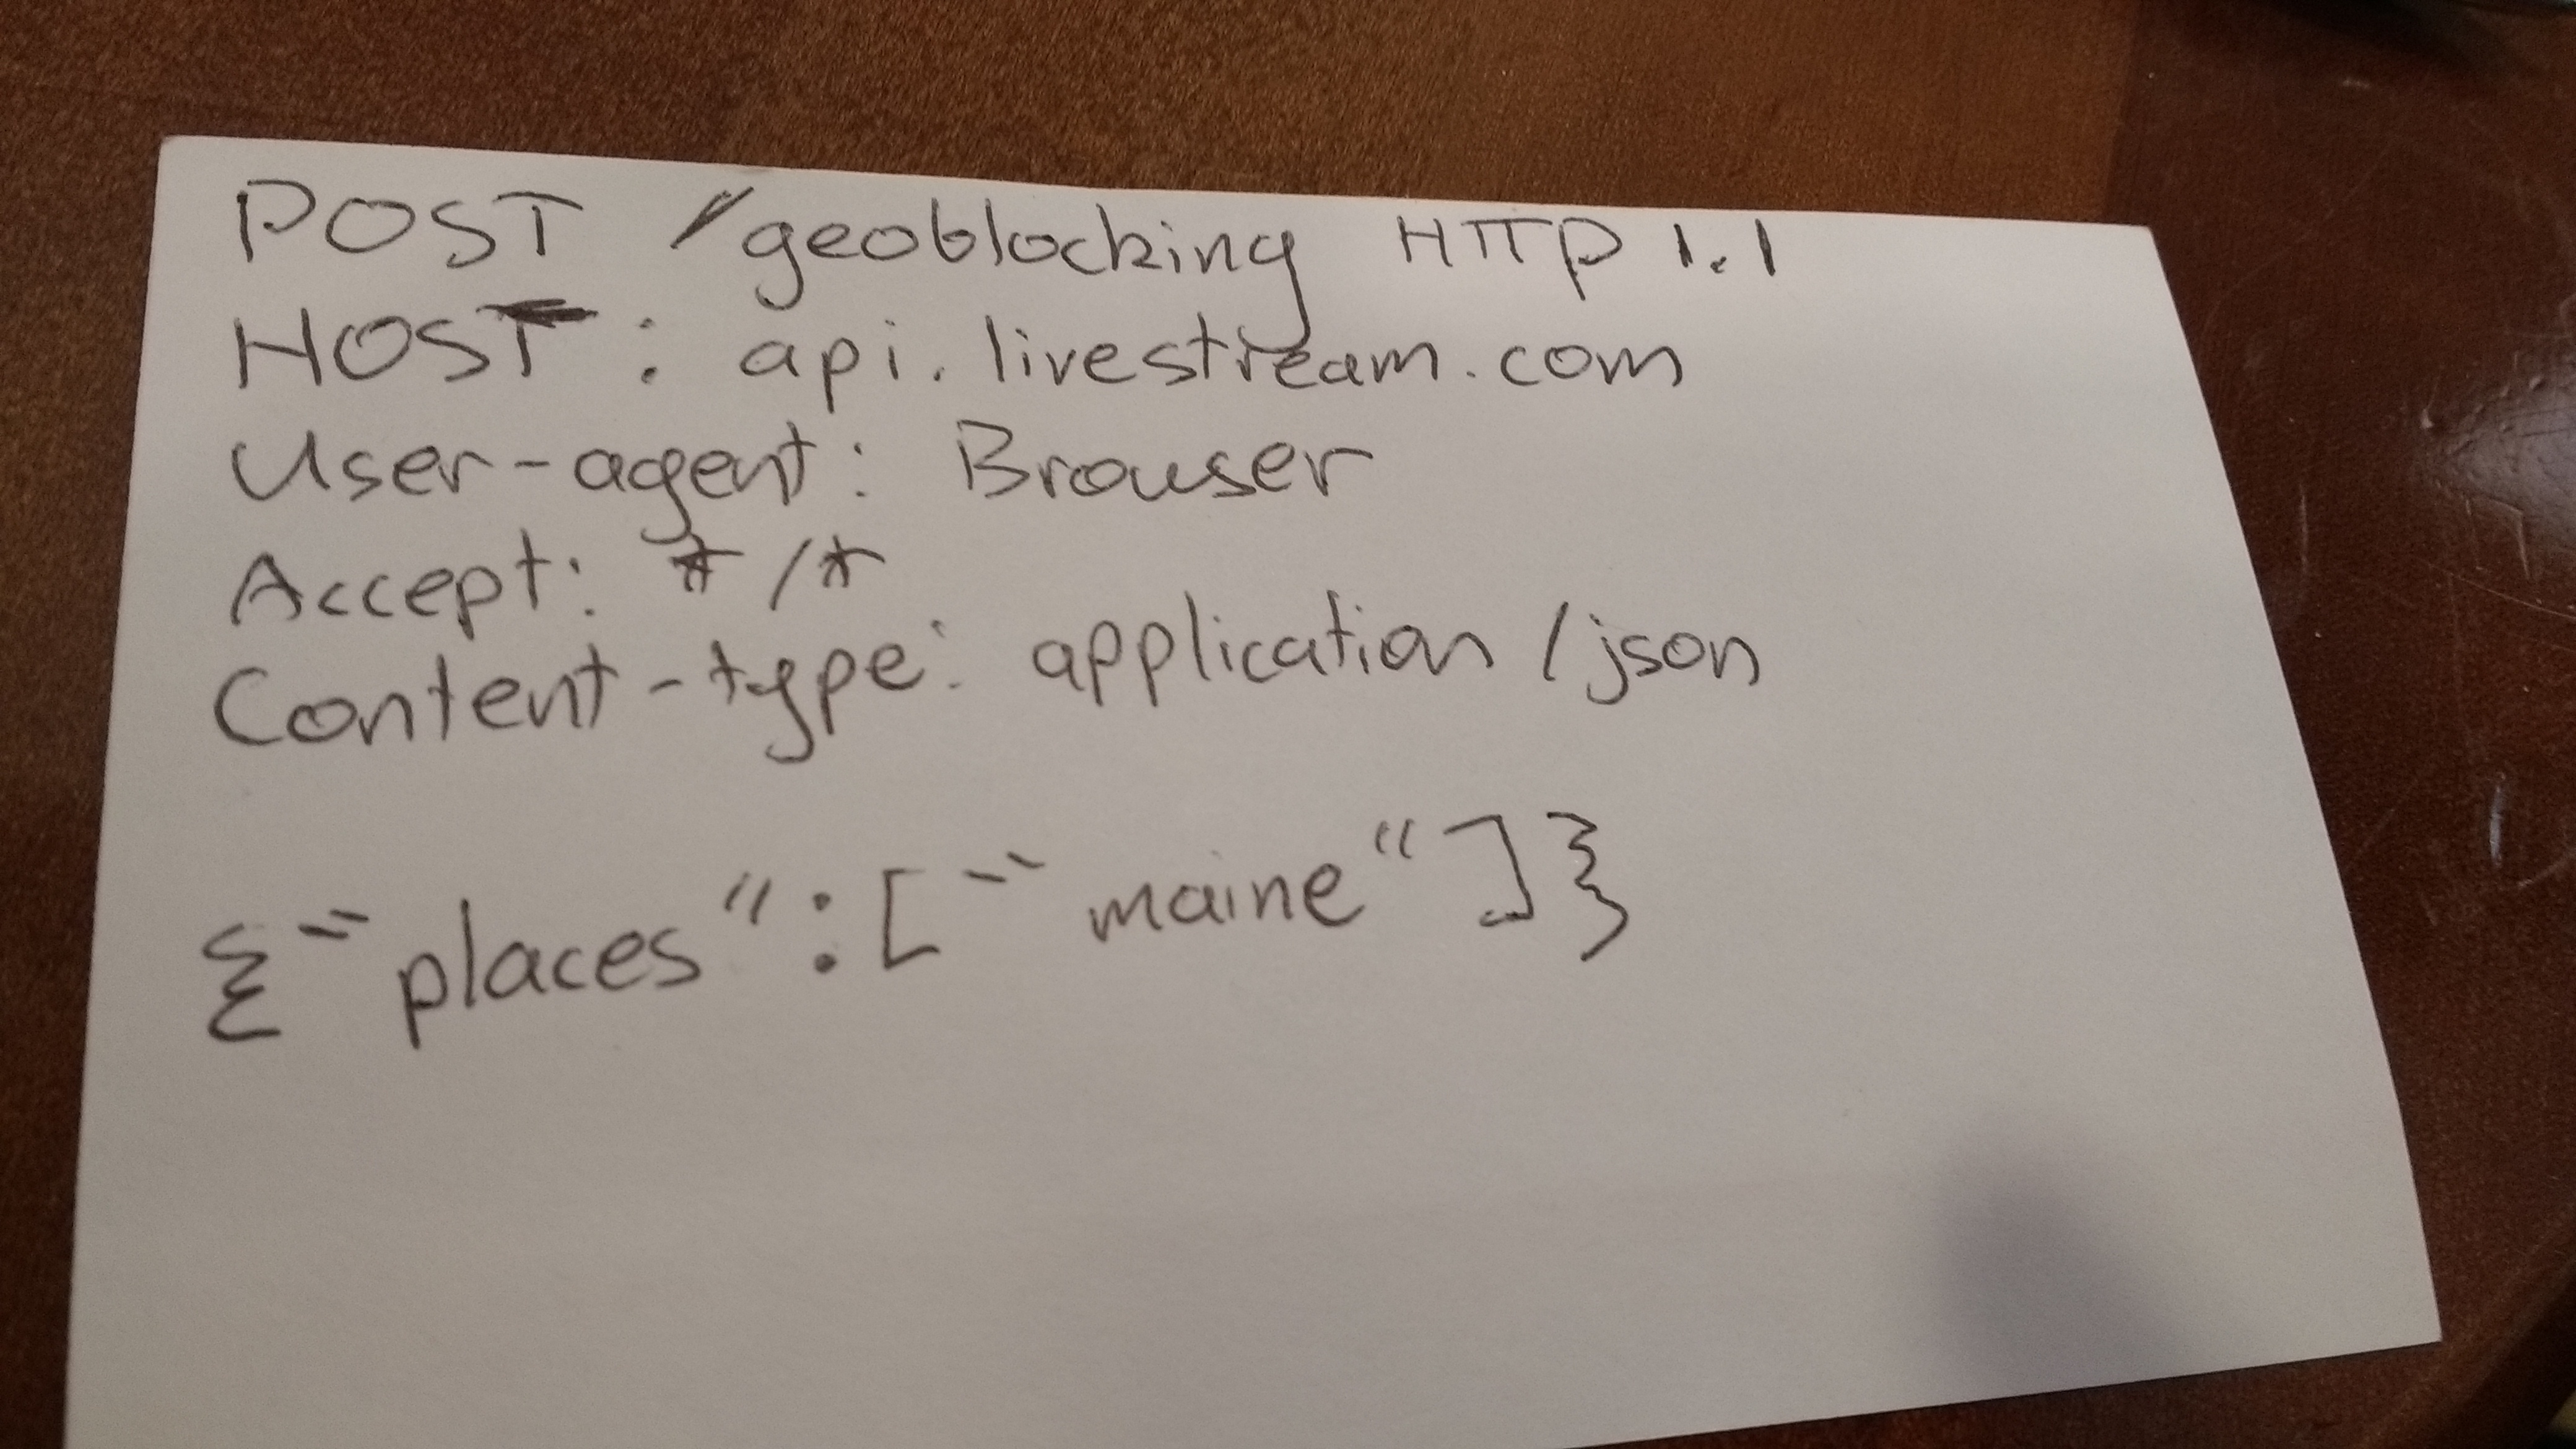 POST /geoblocking HTTP 1.1
HOST: api.livestream.com
User-agent: Browser
Accept: */*
Content-type: application/json
{"places":["maine"]}